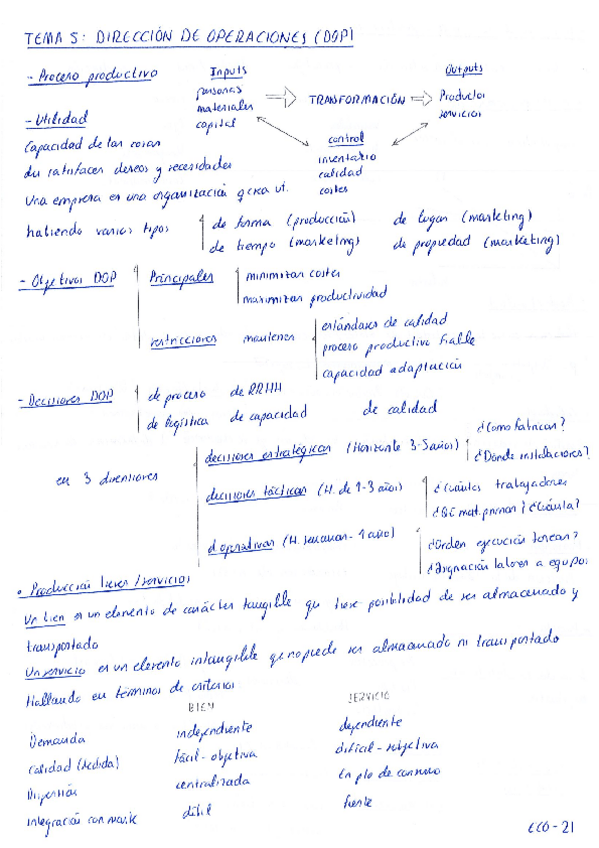 TEMA 5: DIRECCIÓN DE OPERACIONES (DOP)
- Proceso productivo
Inputs
personas
materiales
capital
TRANSFORMACIÓN
Outputs
Productos
servicios
control
inventario
calidad
costes
- Utilidad
Capacidad de las cosas
de satisfacer deseos y necesidades
Una empresa es una organización q crea ut.
habiendo varios tipos
de forma (producción) de lugar (marketing)
de tiempo (marketing) de propiedad (marketing)
- Objetivos DOP
Principales
minimizar costes
maximizar productividad
restricciones mantener
estándares de calidad
proceso productivo fiable
capacidad adaptación
- Decisiones DOP
de proceso de RRHH
de logística de capacidad de calidad
en 3 dimensiones
decisiones estratégicas (Horizonte 3-5 años)
¿Como fabricar?
¿Dónde instalaciones?
decisiones tácticas (H. de 1-3 años)
¿Cuántos trabajadores
¿Q mat. primas? ¿Cuánta?
d operativas (H. semanas - 1 año)
¿Orden ejecución tareas?
¿Asignación labores a equipos
• Producción bienes / servicios
Un bien es un elemento de carácter tangible que tiene posibilidad de ser almacenado y
transportado
Un servicio es un elemento intangible q no puede ser almacenado ni transportado
Hallando en términos de criterios
BIEN SERVICIO
Demanda independiente dependiente
Calidad (Medida) fácil - objetiva difícil - subjetiva
Dispersión centralizada En pto de consumo
Integración con mark débil fuerte
ECO - 21